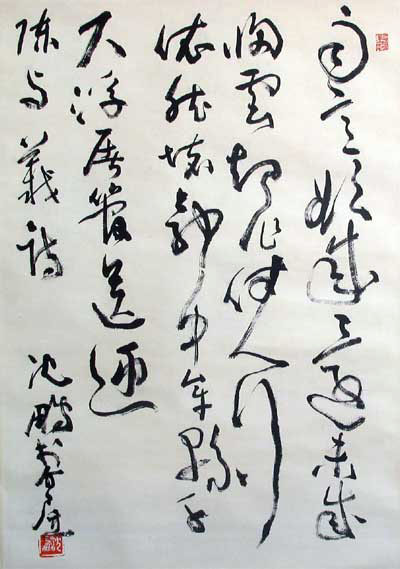 雨意欲成還未成
歸雲却作伴人行
依然壞郭中牟縣千
尺浮屠管送迎
陳與義詩 沈鵬書介居